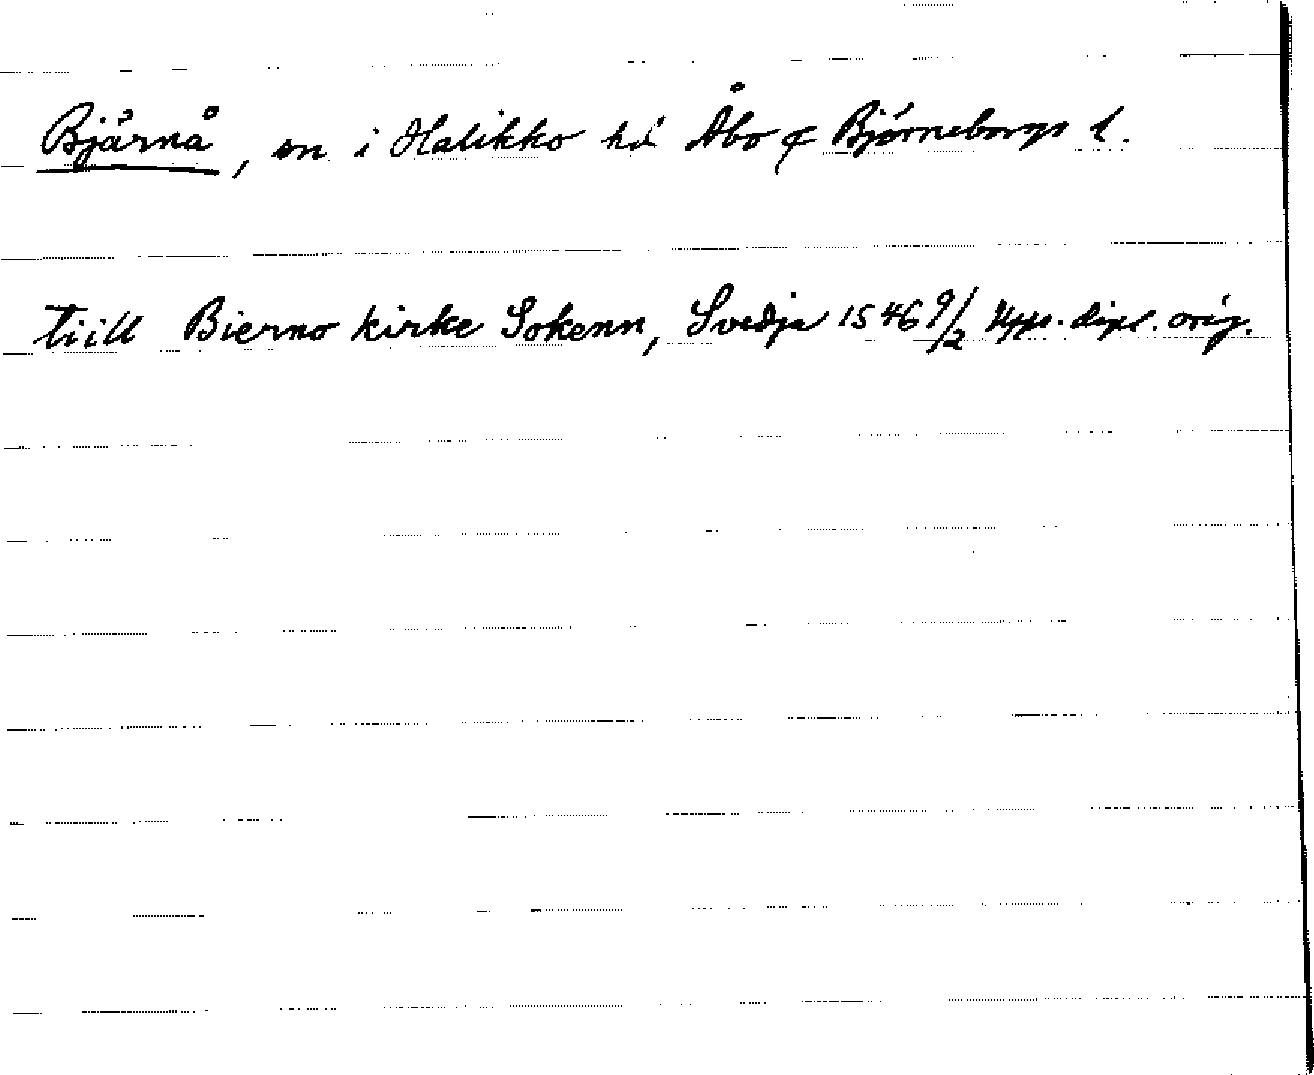 Bjärnå, sn i Halikko hd Åbo & Björneborgs l.
tiill Bierno kirke Sokenn, Svedja 1546 9/2 Upps. dipl. orig.